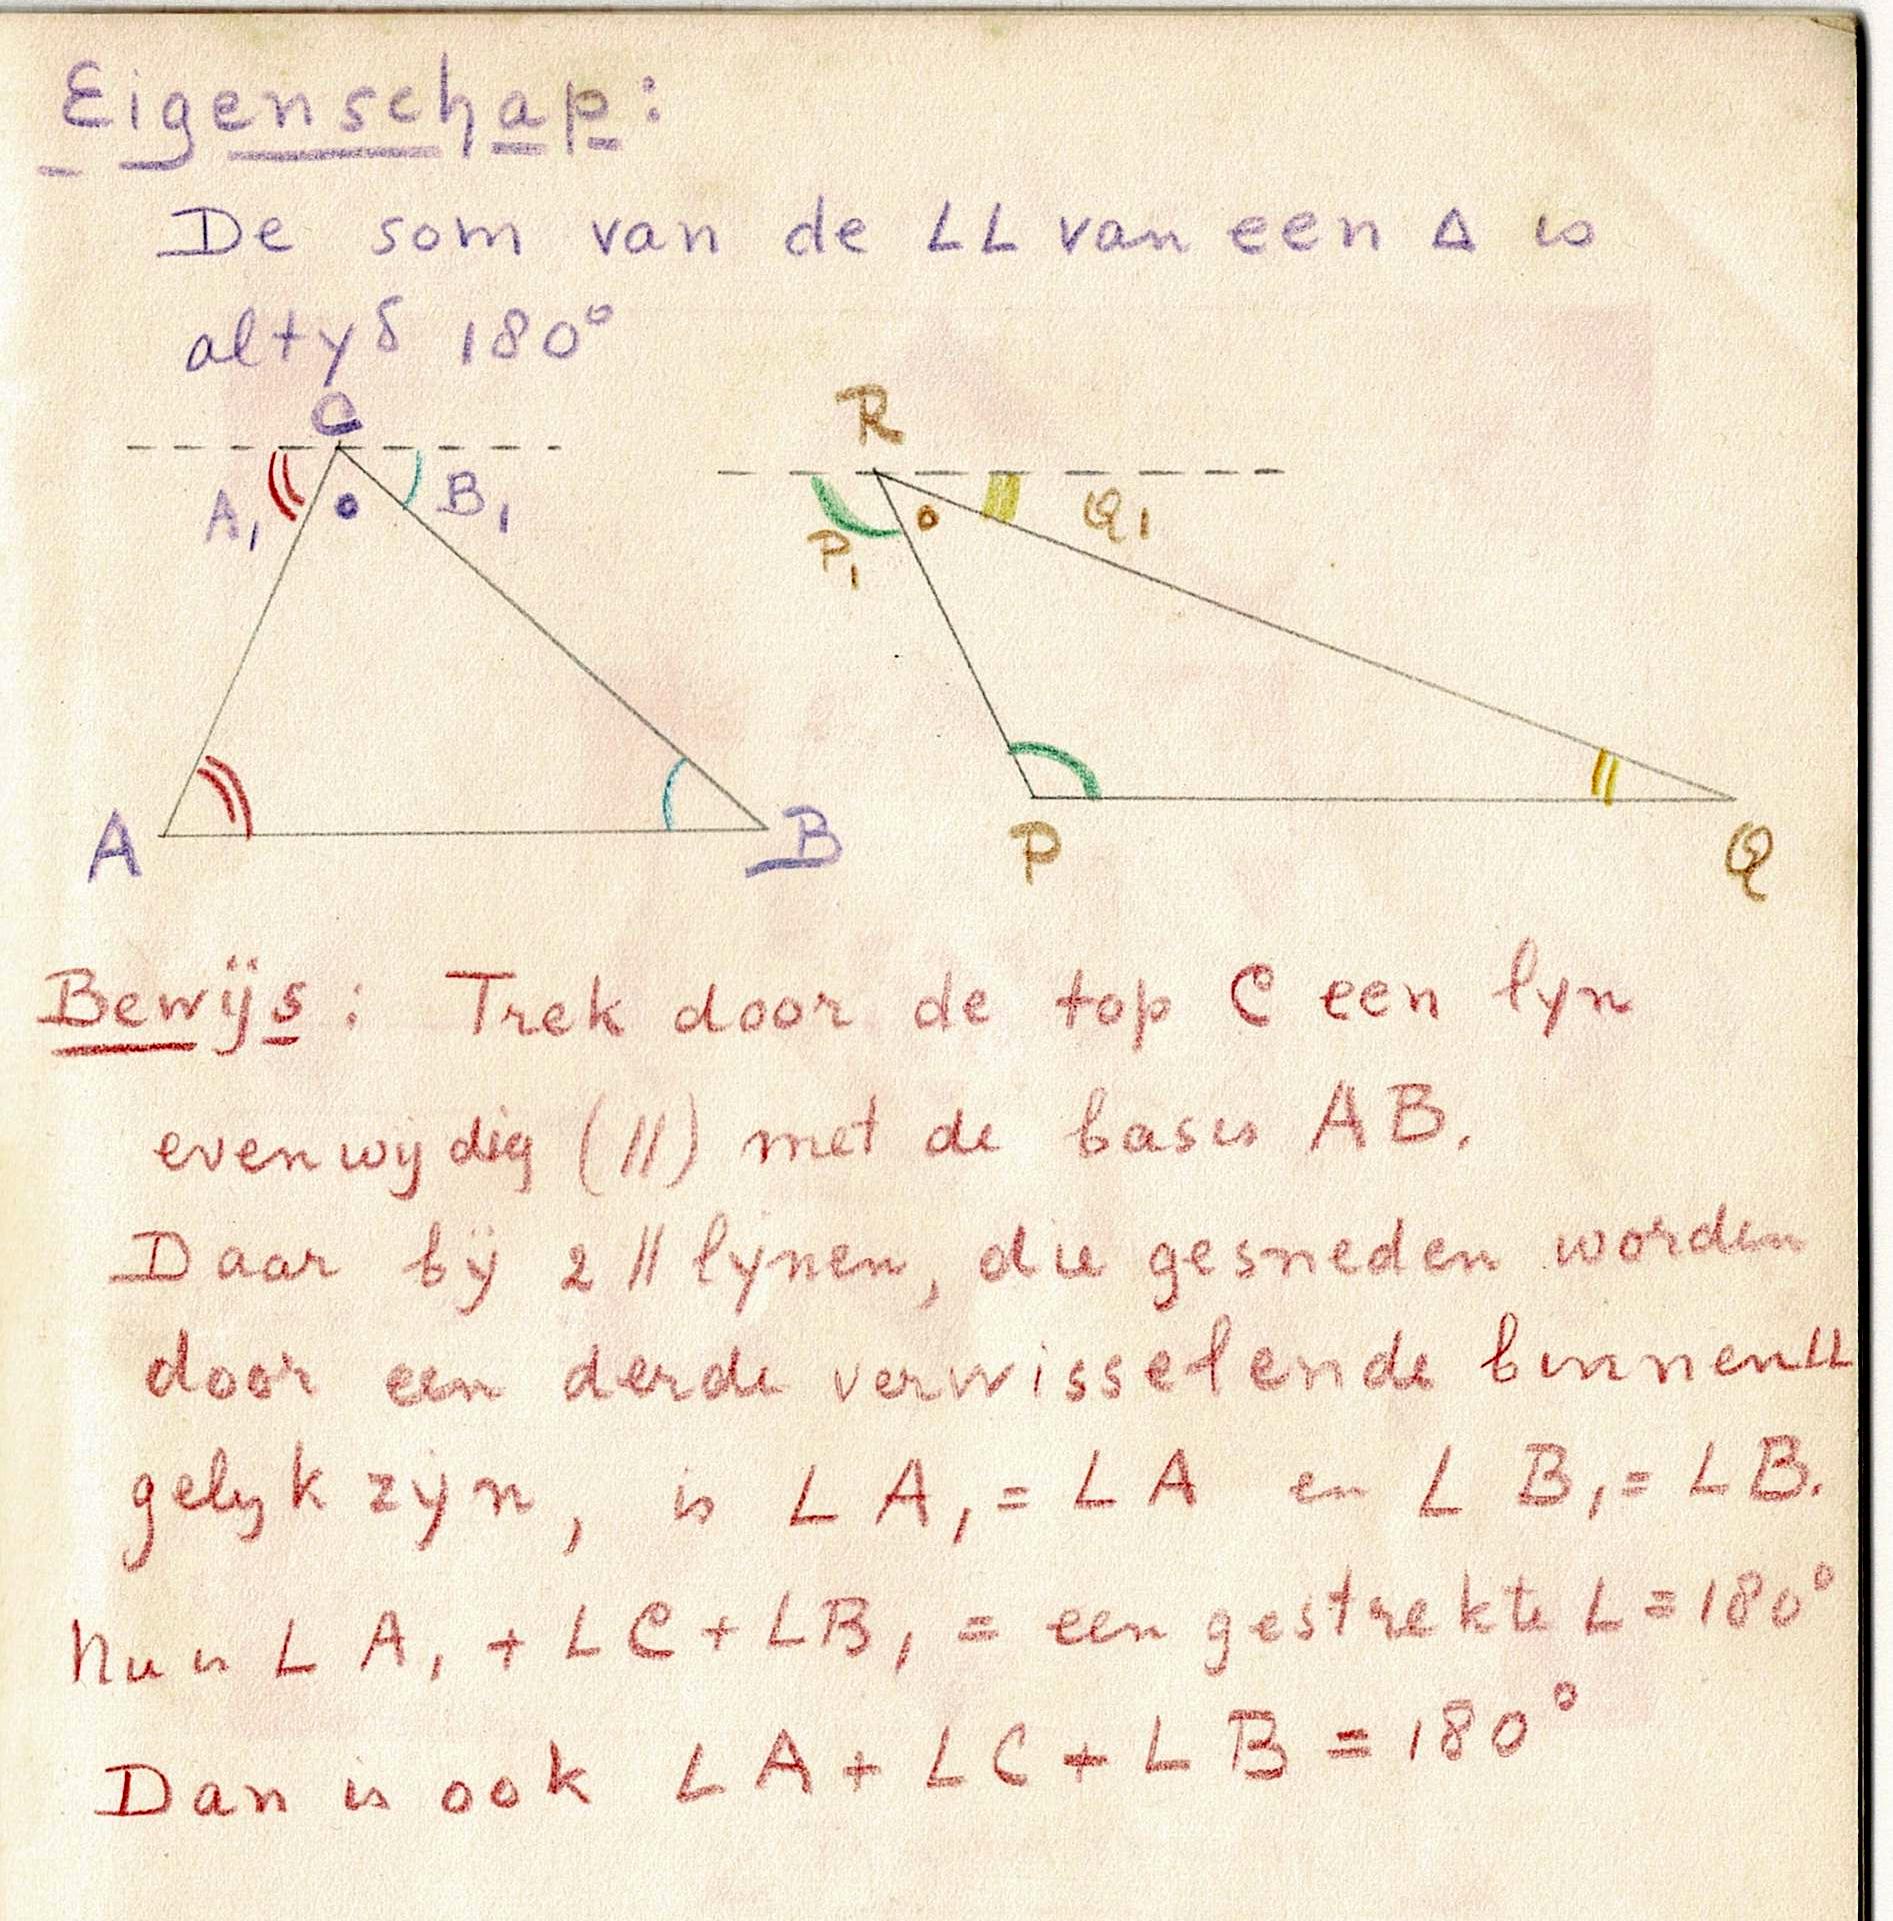 Eigenschap:
De som van de ∠∠ van een Δ is
altyd 180°
C
R
A₁
B₁
P₁
Q₁
A
B
P
Q
Bewijs: Trek door de top C een lyn
evenwijdig (//) met de basis AB.
Daar bÿ 2 // lijnen, die gesneden worden
door een derde verwisselende binnen∠∠
gelyk zijn, is ∠ A₁ = ∠ A en ∠ B₁ = ∠ B.
Nu is ∠ A₁ + ∠ C + ∠ B₁ = een gestrekte ∠ = 180°
Dan is ook ∠ A + ∠ C + ∠ B = 180°